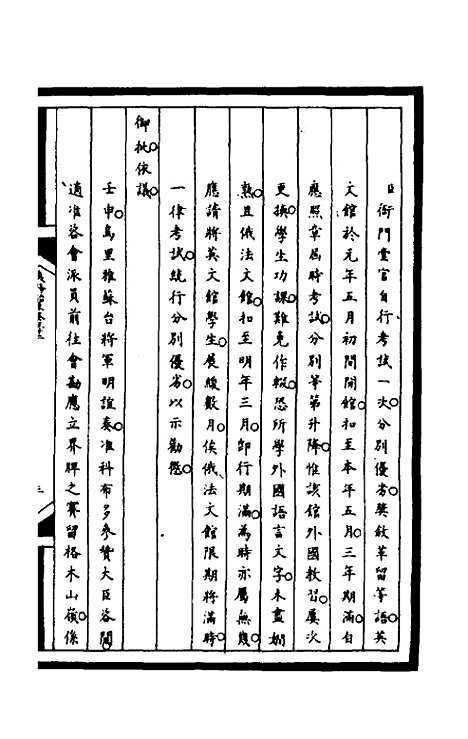 臣衙門堂官自行考試一次。分別優劣。獎敘革留等語。英
文館於元年五月初間開館。扣至本年五月。三年期滿。自
應照章屆時考試。分別等第升降。惟該館外國教習。屢次
更換。學生功課。難免作輟。恐所學外國語言文字。未盡嫻
熟。且俄法文館。扣至明年三月。卽行期滿。為時亦屬無幾。
應請將英文館學生。展緩數月。俟俄法文館限期將滿時。
一律考試。統行分別優劣。以示勸懲。
御批。依議。
壬申。烏里雅蘇台將軍明誼奏。准科布多參贊大臣咨開。
適准咨會派員前往會勘應立界牌之賽留格木山嶺。係